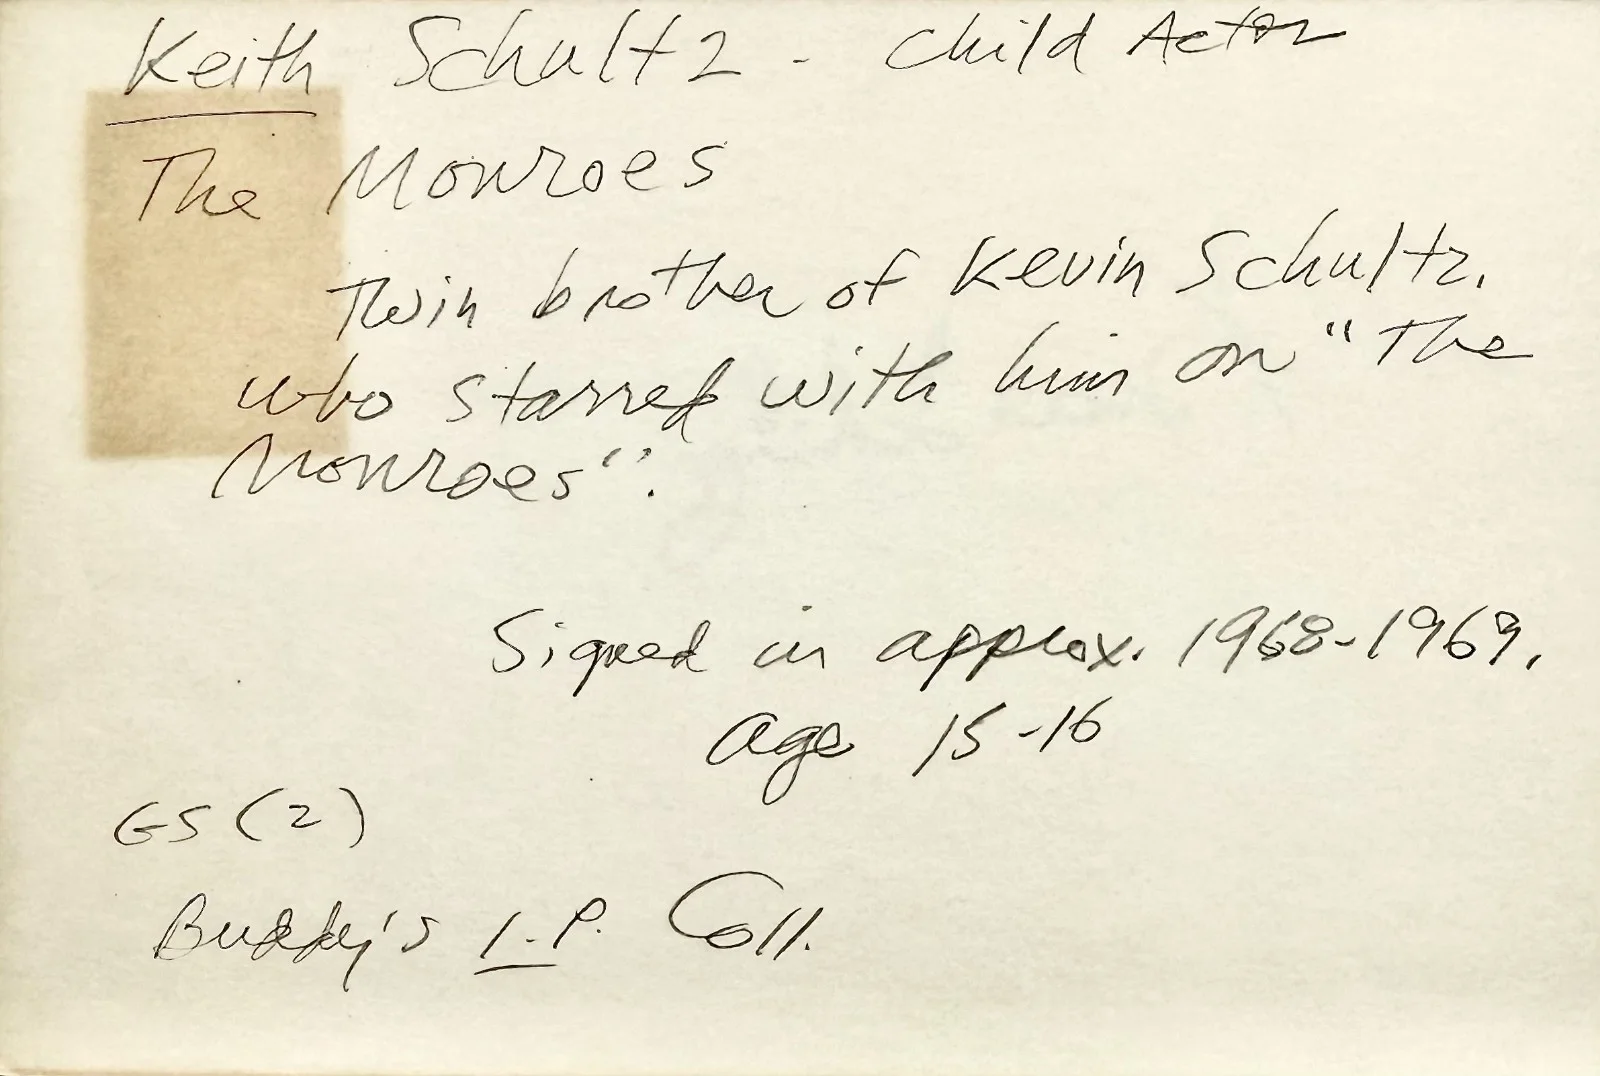 Keith Schultz - Child Actor
The Monroes
Twin brother of Kevin Schultz.
who starred with him on "The
Monroes".
Signed in approx. 1968-1969.
age 15-16
GS (2)
Buddy's I.P. Coll.